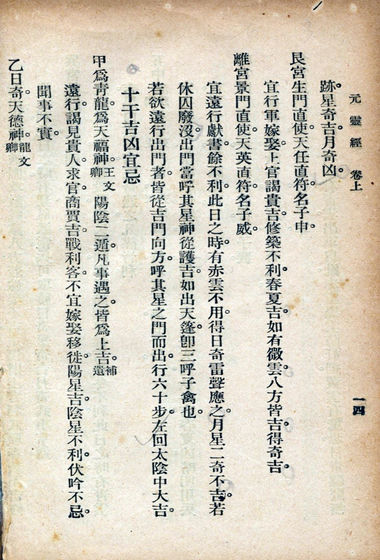 元靈經 卷上
一四
跡星奇吉月奇凶
艮宮生門直使天任直符名子申
宜行軍嫁娶上官謁貴吉修築不利春夏吉如有微雲八方皆吉得奇吉
離宮景門直使天英直符名子威
宜遠行獻書餘不利此日之時有赤雲不用得日奇雷聲應之月星二奇不吉若
休囚廢沒出門當呼其星神從護吉如出天蓬卽三呼子禽也
若欲遠行出門者皆從吉門向方呼其星之門而出行六十步左回太陰中大吉
十干吉凶宜忌
甲爲靑龍爲天福神王文卿 陽陰二遁凡事遇之皆爲上吉補遺
遠行謁見貴人求官商賈吉戰利客不宜嫁娶移徙陽星吉陰星不利伏吟不忌
聞事不實
乙日奇天德神龍文卿